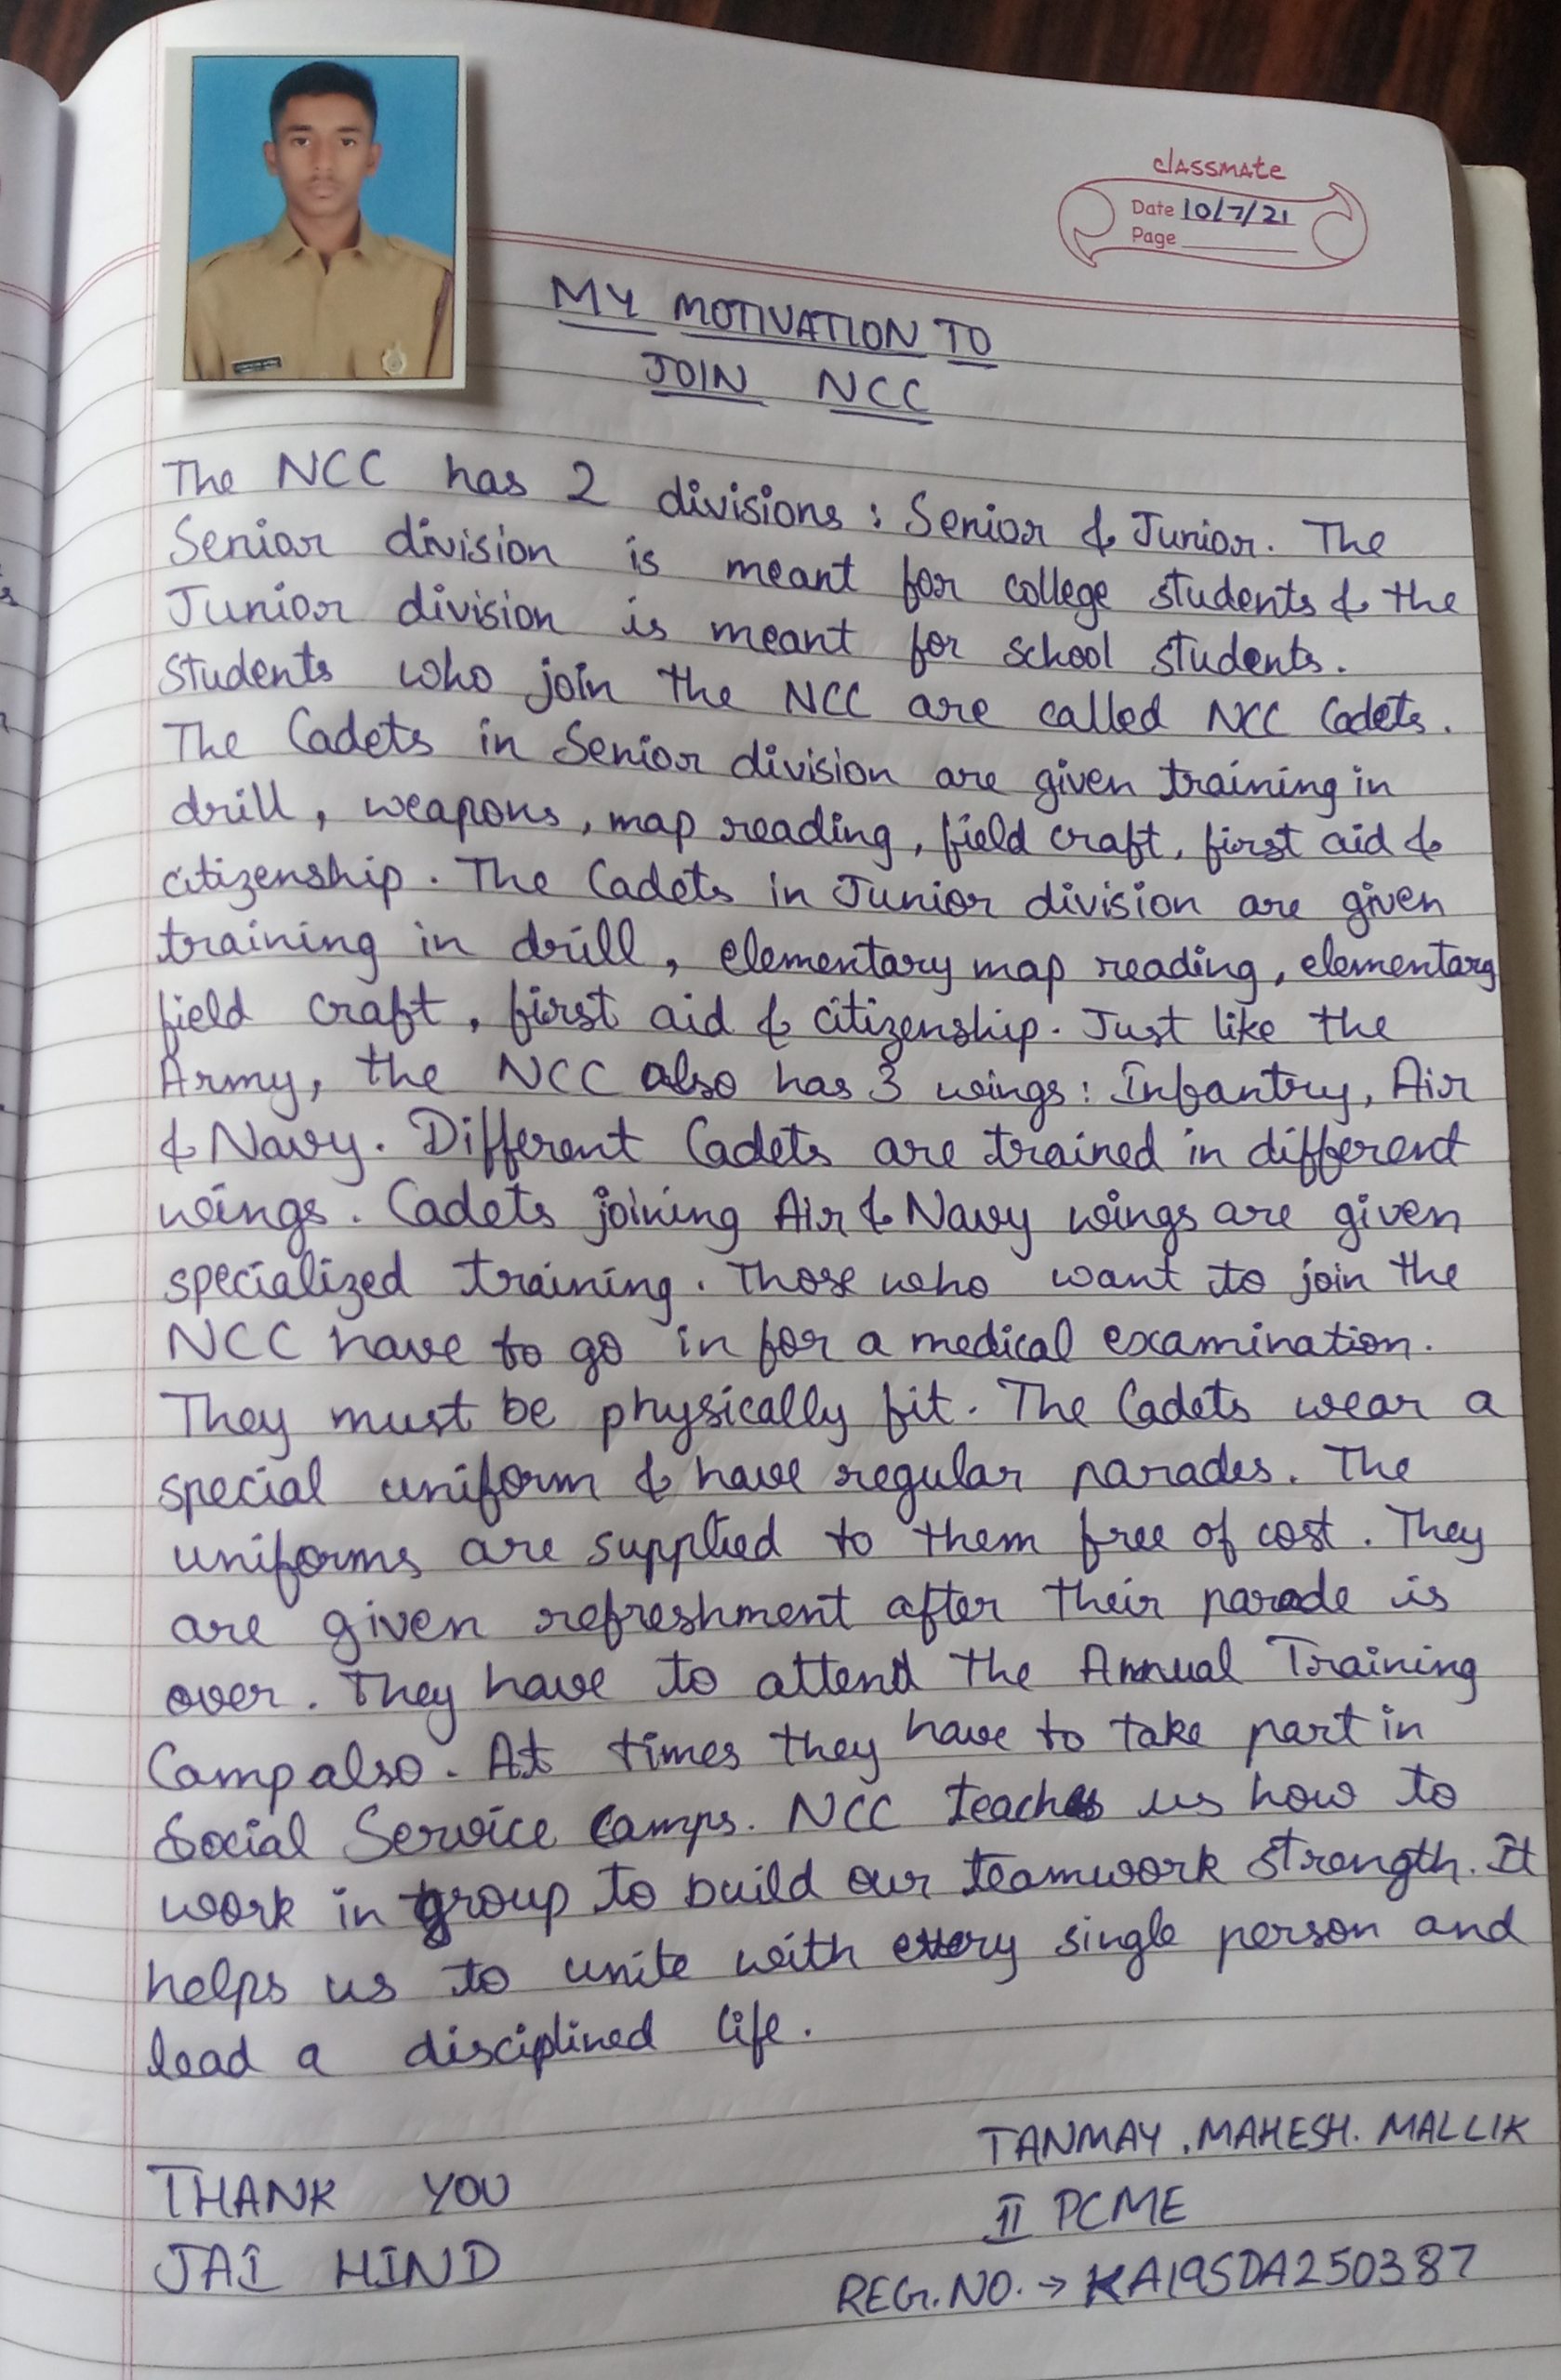 classmate
Date 10/7/21
Page
MY MOTIVATION TO
JOIN NCC
The NCC has 2 divisions : Senior & Junior. The
Senior division is meant for college students & the
Junior division is meant for school students.
Students who join the NCC are called NCC Cadets.
The Cadets in Senior division are given training in
drill, weapons, map reading, field craft, first aid &
citizenship. The Cadets in Junior division are given
training in drill, elementary map reading, elementary
field craft, first aid & citizenship. Just like the
Army, the NCC also has 3 wings : Infantry, Air
& Navy. Different Cadets are trained in different
wings. Cadets joining Air & Navy wings are given
specialized training. Those who want to join the
NCC have to go in for a medical examination.
They must be physically fit. The Cadets wear a
special uniform & have regular parades. The
uniforms are supplied to them free of cost. They
are given refreshment after their parade is
over. They have to attend the Annual Training
Camp also. At times they have to take part in
Social Service Camps. NCC teaches us how to
work in group to build our teamwork strength. It
helps us to unite with every single person and
lead a disciplined life.
TANMAY . MAHESH. MALLIK
THANK YOU
II PCME
JAI HIND
REG.NO. → KA19SDA250387